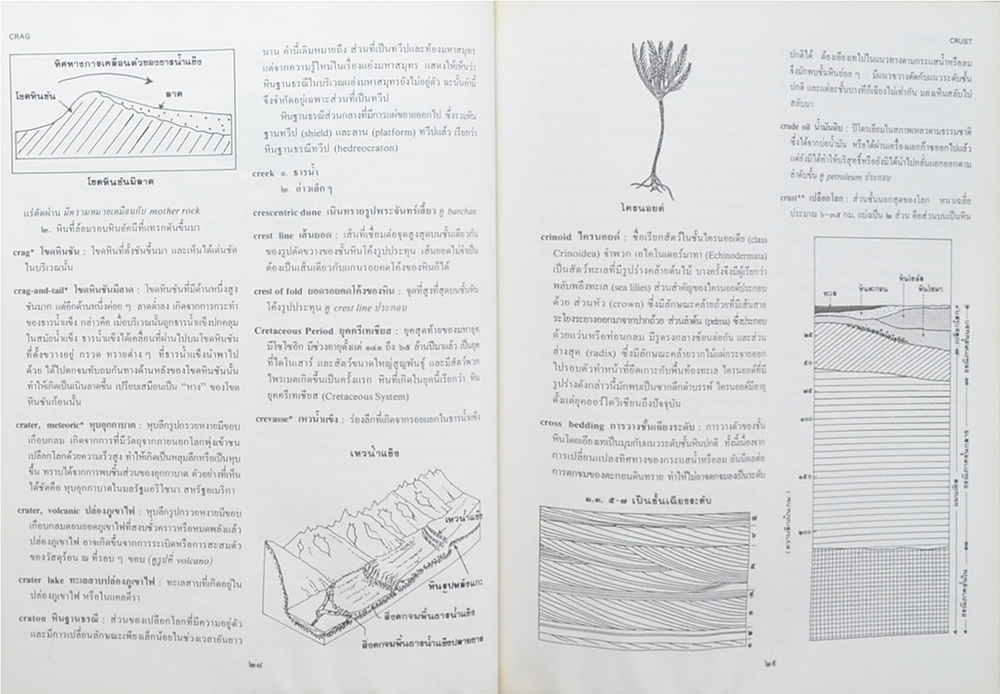 CRAG
ทิศทางการเคลื่อนตัวของธารน้ำแข็ง
โขดหินชัน
ลาด
โขดหินชันมีลาด
แร่ตัดผ่าน มีความหมายเหมือนกับ mother rock
๒. หินที่ล้อมรอบหินอัคนีที่แทรกดันขึ้นมา
crag* โขดหินชัน : โขดหินที่ตั้งชันขึ้นมา และเห็นได้เด่นชัด
ในบริเวณนั้น
crag-and-tail* โขดหินชันมีลาด : โขดหินชันที่ด้านหนึ่งสูง
ชันมาก แต่อีกด้านหนึ่งค่อย ๆ ลาดต่ำลง เกิดจากการกระทำ
ของธารน้ำแข็ง กล่าวคือ เมื่อบริเวณนั้นถูกธารน้ำแข็งปกคลุม
ในสมัยน้ำแข็ง ธารน้ำแข็งได้เคลื่อนที่ผ่านไปบนโขดหินชัน
ที่ตั้งขวางอยู่ กรวด ทรายต่าง ๆ ที่ธารน้ำแข็งนำพาไป
ด้วย ได้ไปตกจมทับถมกันทางด้านหลังของโขดหินชันนั้น
ทำให้เกิดเป็นเนินลาดขึ้น เปรียบเสมือนเป็น “หาง” ของโขด
หินชันก้อนนั้น
crater, meteoric* หุบอุกกาบาต : หุบลึกรูปกรวยหงายมีขอบ
เกือบกลม เกิดจากการที่มีวัตถุจากภายนอกโลกพุ่งเข้าชน
เปลือกโลกด้วยความเร็วสูง ทำให้เกิดเป็นหลุมลึกหรือเป็นหุบ
ขึ้น ทราบได้จากการพบชิ้นส่วนของอุกกาบาต ตัวอย่างที่เห็น
ได้ชัดคือ หุบอุกกาบาตในมลรัฐแอริโซนา สหรัฐอเมริกา
crater, volcanic ปล่องภูเขาไฟ : หุบลึกรูปกรวยหงายมีขอบ
เกือบกลมตอนยอดภูเขาไฟที่สงบชั่วคราวหรือหมดพลังแล้ว
ปล่องภูเขาไฟ อาจเกิดขึ้นจากการระเบิดหรือการสะสมตัว
ของวัตถุร้อน ณ ที่รอบ ๆ ขอบ (ดูรูปที่ volcano)
crater lake ทะเลสาบปล่องภูเขาไฟ : ทะเลสาบที่เกิดอยู่ใน
ปล่องภูเขาไฟ หรือในแคลดีรา
craton หินฐานธรณี : ส่วนของเปลือกโลกที่มีความอยู่ตัว
และมีการเปลี่ยนลักษณะเพียงเล็กน้อยในช่วงเวลาอันยาว
นาน คำนี้เดิมหมายถึง ส่วนที่เป็นทวีปและท้องมหาสมุทร
แต่จากความรู้ใหม่ในเรื่องแอ่งมหาสมุทร แสดงให้เห็นว่า
หินฐานธรณีในบริเวณแอ่งมหาสมุทรยังไม่อยู่ตัว ฉะนั้นคำนี้
จึงจำกัดอยู่เฉพาะส่วนที่เป็นทวีป
หินฐานธรณีส่วนกลางที่มีการแผ่ขยายออกไป ซึ่งรวมหิน
ฐานทวีป (shield) และลาน (platform) ทวีปแล้ว เรียกว่า
หินฐานธรณีทวีป (hedreocraton)
creek ๑. ธารน้ำ
๒. อ่าวเล็ก ๆ
crescentric dune เนินทรายรูปพระจันทร์เสี้ยว ดู barchan
crest line เส้นยอด : เส้นที่เชื่อมต่อจุดสูงสุดบนชั้นเดียวกัน
ของรูปตัดขวางของชั้นหินโค้งรูปประทุน เส้นยอดไม่จำเป็น
ต้องเป็นเส้นเดียวกับแกนรอยคดโค้งของหินก็ได้
crest of fold ยอดรอยคดโค้งของหิน : จุดที่สูงที่สุดบนชั้นหิน
โค้งรูปประทุน ดู crest line ประกอบ
Cretaceous Period ยุคครีเทเชียส : ยุคสุดท้ายของมหายุค
มีโซโซอิก มีช่วงอายุตั้งแต่ ๑๔๑ ถึง ๖๕ ล้านปีมาแล้ว เป็นยุค
ที่ไดโนเสาร์ และสัตว์ขนาดใหญ่สูญพันธุ์ และมีสัตว์พวก
ไพรเมตเกิดขึ้นเป็นครั้งแรก หินที่เกิดในยุคนี้เรียกว่า หิน
ยุคครีเทเชียส (Cretaceous System)
crevasse* เหวน้ำแข็ง : ร่องลึกที่เกิดจากรอยแยกในธารน้ำแข็ง
เหวน้ำแข็ง
เหวน้ำแข็ง
หินรูปหลังแกะ
สิ่งตกจมพื้นธารน้ำแข็ง
สิ่งตกจมพื้นธารน้ำแข็งปลายธาร
๒๔
CRUST
โครนอยด์
crinoid ไครนอยด์ : ชื่อเรียกสัตว์ในชั้นไครนอยเดีย (class
Crinoidea) จำพวก เอไคโนเดอร์มาทา (Echinodermata)
เป็นสัตว์ทะเลที่มีรูปร่างคล้ายต้นไม้ บางครั้งจึงมีผู้เรียกว่า
พลับพลึงทะเล (sea lilies) ส่วนสำคัญของไครนอยด์ประกอบ
ด้วย ส่วนหัว (crown) ซึ่งมีลักษณะคล้ายถ้วยที่มีเส้นสาย
ระโยงระยางออกมาจากปากถ้วย ส่วนลำต้น (pelma) ซึ่งประกอบ
ด้วยแว่นหรือท่อนกลม มีรูตรงกลางซ้อนต่อกัน และส่วน
ล่างสุด (radix) ซึ่งมีลักษณะคล้ายรากไม้แผ่กระจายออก
ไปรอบตัวทำหน้าที่ยึดเกาะกับพื้นท้องทะเล ไครนอยด์ที่มี
รูปร่างดังกล่าวนี้มักพบเป็นซากดึกดำบรรพ์ ไครนอยด์มีอายุ
ตั้งแต่ยุคออร์โดวิเชียนถึงปัจจุบัน
cross bedding การวางชั้นเฉียงระดับ : การวางตัวของชั้น
หินโดยเอียงเทเป็นมุมกับแนวระดับชั้นหินปกติ ทั้งนี้เนื่องจาก
การเปลี่ยนแปลงทิศทางของกระแสน้ำหรือลม อันมีผลต่อ
การตกจมของตะกอนดินทราย ทำให้ไม่อาจตกจมลงเป็นระดับ
๑.๓. ๕-๗ เป็นชั้นเฉียงระดับ
ปกติได้ ต้องเอียงเทไปในแนวทางตามกระแสน้ำหรือลม
จึงมักพบชั้นหินย่อย ๆ มีแนวขวางตัดกับแนวระดับชั้น
ปกติ และแต่ละชั้นบางทีก็เฉียงไม่เท่ากัน มองเห็นสลับไป
สลับมา
crude oil น้ำมันดิบ : ปิโตรเลียมในสภาพเหลวตามธรรมชาติ
ซึ่งได้จากบ่อน้ำมัน หรือได้ผ่านเครื่องแยกก๊าซออกไปแล้ว
แต่ยังมิได้ทำให้บริสุทธิ์หรือยังมิได้นำไปกลั่นแยกออกตาม
ลำดับขั้น ดู petroleum ประกอบ
crust** เปลือกโลก : ส่วนชั้นนอกสุดของโลก หนาเฉลี่ย
ประมาณ ๖-๓๕ กม. แบ่งเป็น ๒ ส่วน คือส่วนบนเป็นหิน
ทะเล
หินตะกอน
หินไซอัล
หินไซมา
๒๕
๕๐
๑๕๐
๒๐๐
(ความลึกเป็น กม.)
๒๕